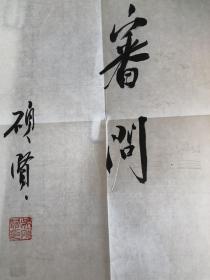 審問
碩賢